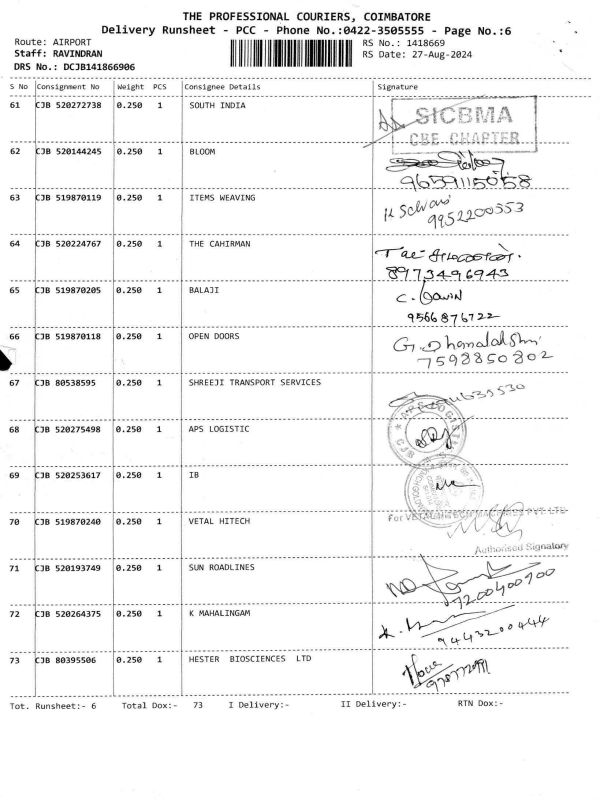 THE PROFESSIONAL COURIERS, COIMBATORE
Delivery Runsheet - PCC - Phone No.:0422-3505555 - Page No.:6
Route: AIRPORT
RS No.: 1418669
Staff: RAVINDRAN
RS Date: 27-Aug-2024
DRS No.: DCJB141866906
S No Consignment No Weight PCS Consignee Details Signature
61 CJB 520272738 0.250 1 SOUTH INDIA
SICBMA
CBE CHAPTER
62 CJB 520144245 0.250 1 BLOOM
9659115058
63 CJB 519870119 0.250 1 ITEMS WEAVING
K Selvani
9952200553
64 CJB 520224767 0.250 1 THE CAHIRMAN
8973496943
65 CJB 519870205 0.250 1 BALAJI
9566876722
66 CJB 519870118 0.250 1 OPEN DOORS
G. Dhanalakshmi
7598850802
67 CJB 80538595 0.250 1 SHREEJI TRANSPORT SERVICES
68 CJB 520275498 0.250 1 APS LOGISTIC
69 CJB 520253617 0.250 1 IB
70 CJB 519870240 0.250 1 VETAL HITECH
Authorised Signatory
71 CJB 520193749 0.250 1 SUN ROADLINES
7200400700
72 CJB 520264375 0.250 1 K MAHALINGAM
9443200444
73 CJB 80395506 0.250 1 HESTER BIOSCIENCES LTD
Tot. Runsheet:- 6 Total Dox:- 73 I Delivery:- II Delivery:- RTN Dox:-